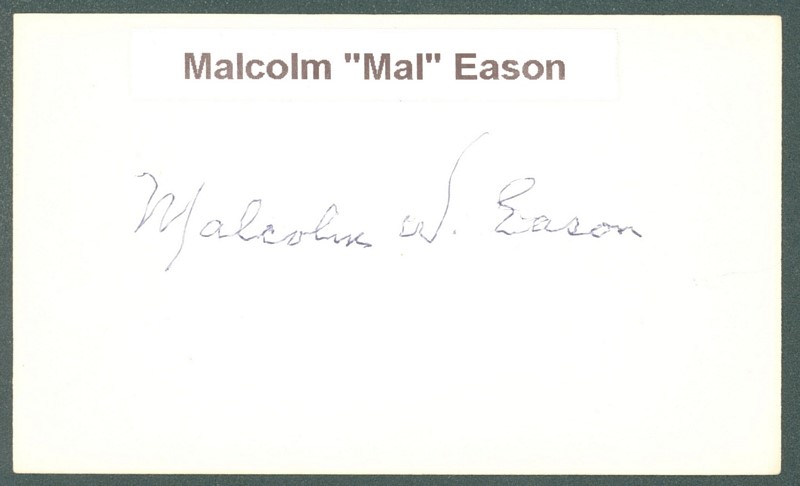 Malcolm "Mal" Eason
Malcolm W. Eason